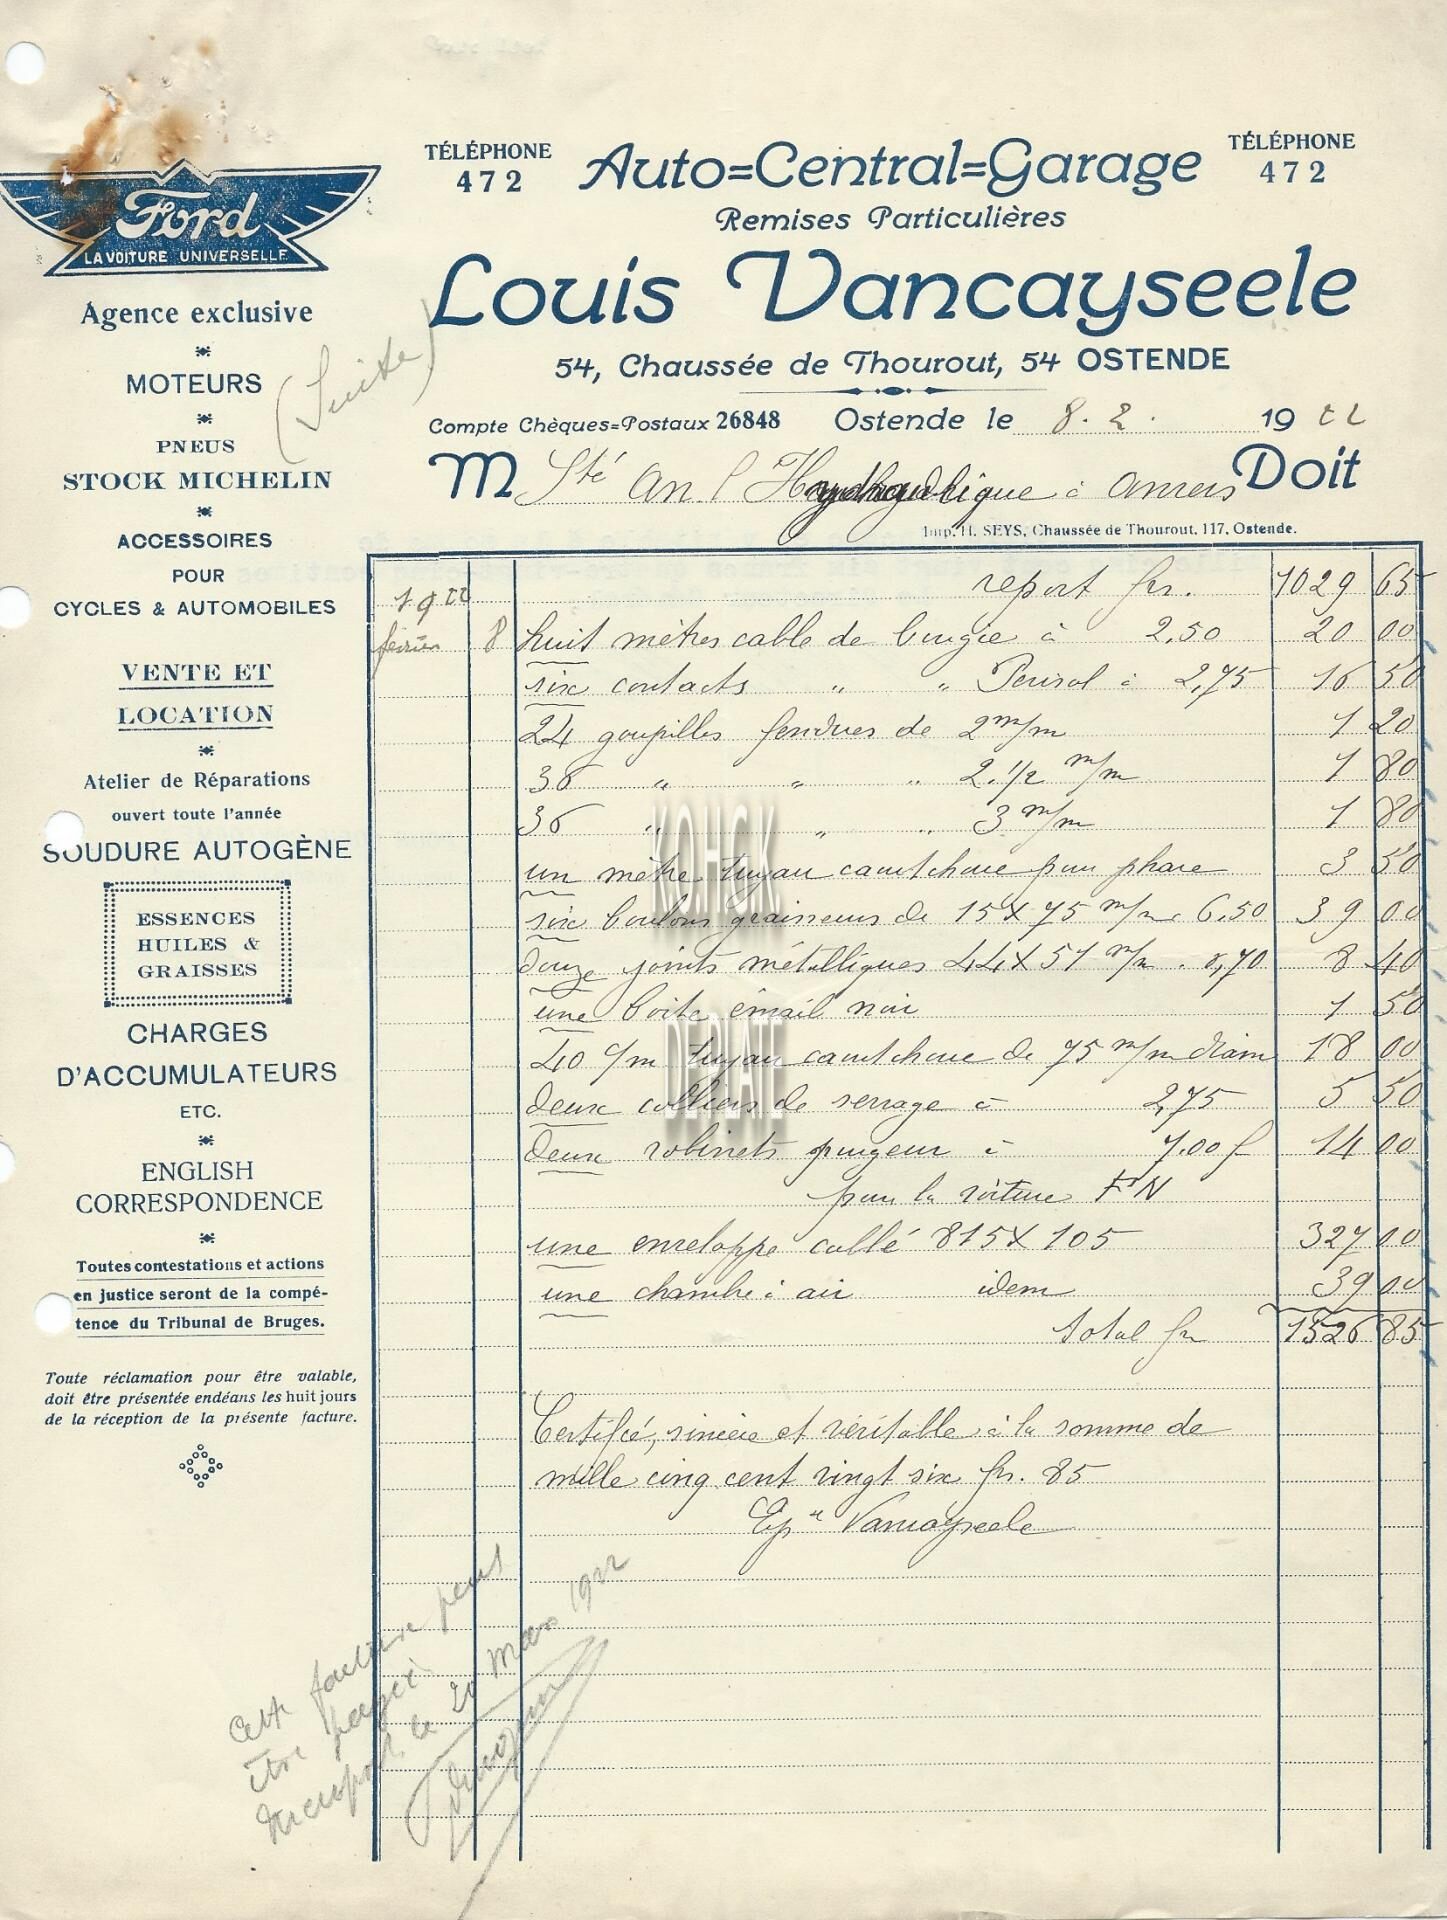 TÉLÉPHONE
472
Auto=Central=Garage
TÉLÉPHONE
472
Remises Particulières
Louis Vancayseele
54, Chaussée de Thourout, 54 OSTENDE
Compte Chèques=Postaux 26848
Ostende le 8.2. 1922
M Sté An l'Hydraulique à Anvers Doit
Imp. H. SEYS, Chaussée de Thourout, 117, Ostende.
Ford
LA VOITURE UNIVERSELLE
Agence exclusive
(Suite)
MOTEURS
PNEUS
STOCK MICHELIN
ACCESSOIRES
POUR
CYCLES & AUTOMOBILES
VENTE ET
LOCATION
Atelier de Réparations
ouvert toute l'année
SOUDURE AUTOGÈNE
ESSENCES
HUILES &
GRAISSES
CHARGES
D'ACCUMULATEURS
ETC.
ENGLISH
CORRESPONDENCE
Toutes contestations et actions
en justice seront de la compé-
tence du Tribunal de Bruges.
Toute réclamation pour être valable,
doit être présentée endéans les huit jours
de la réception de la présente facture.
1922 report fr. 1029 65
février 8 huit mètres cable de bougie à 2,50 20 00
six contacts " " à 2,75 16 50
24 goupilles fendues de 2 m/m 1 20
36 " " " 2.1/2 m/m 1 80
36 " " " 3 m/m 1 80
un mètre tuyau caoutchouc pour phare 3 50
six boulons graisseurs de 15 X 75 m/m 6,50 39 00
douze joints métalliques 44 X 51 m/m 0,70 8 40
une boite émail noir 1 50
40 c/m tuyau caoutchouc de 75 m/m diam 18 00
deux colliers de serrage à 2,75 5 50
deux robinets purgeur à 7.00 f 14 00
pour la voiture FN
une enveloppe cablé 815 X 105 327 00
une chambre à air idem 39 00
total fr 1526 85
Certifié, sincère et véritable à la somme de
mille cinq cent vingt six fr. 85
Vancayseele
Cette facture peut
être payée
le 20 Mars 1922
KOHGK
DEPLATE